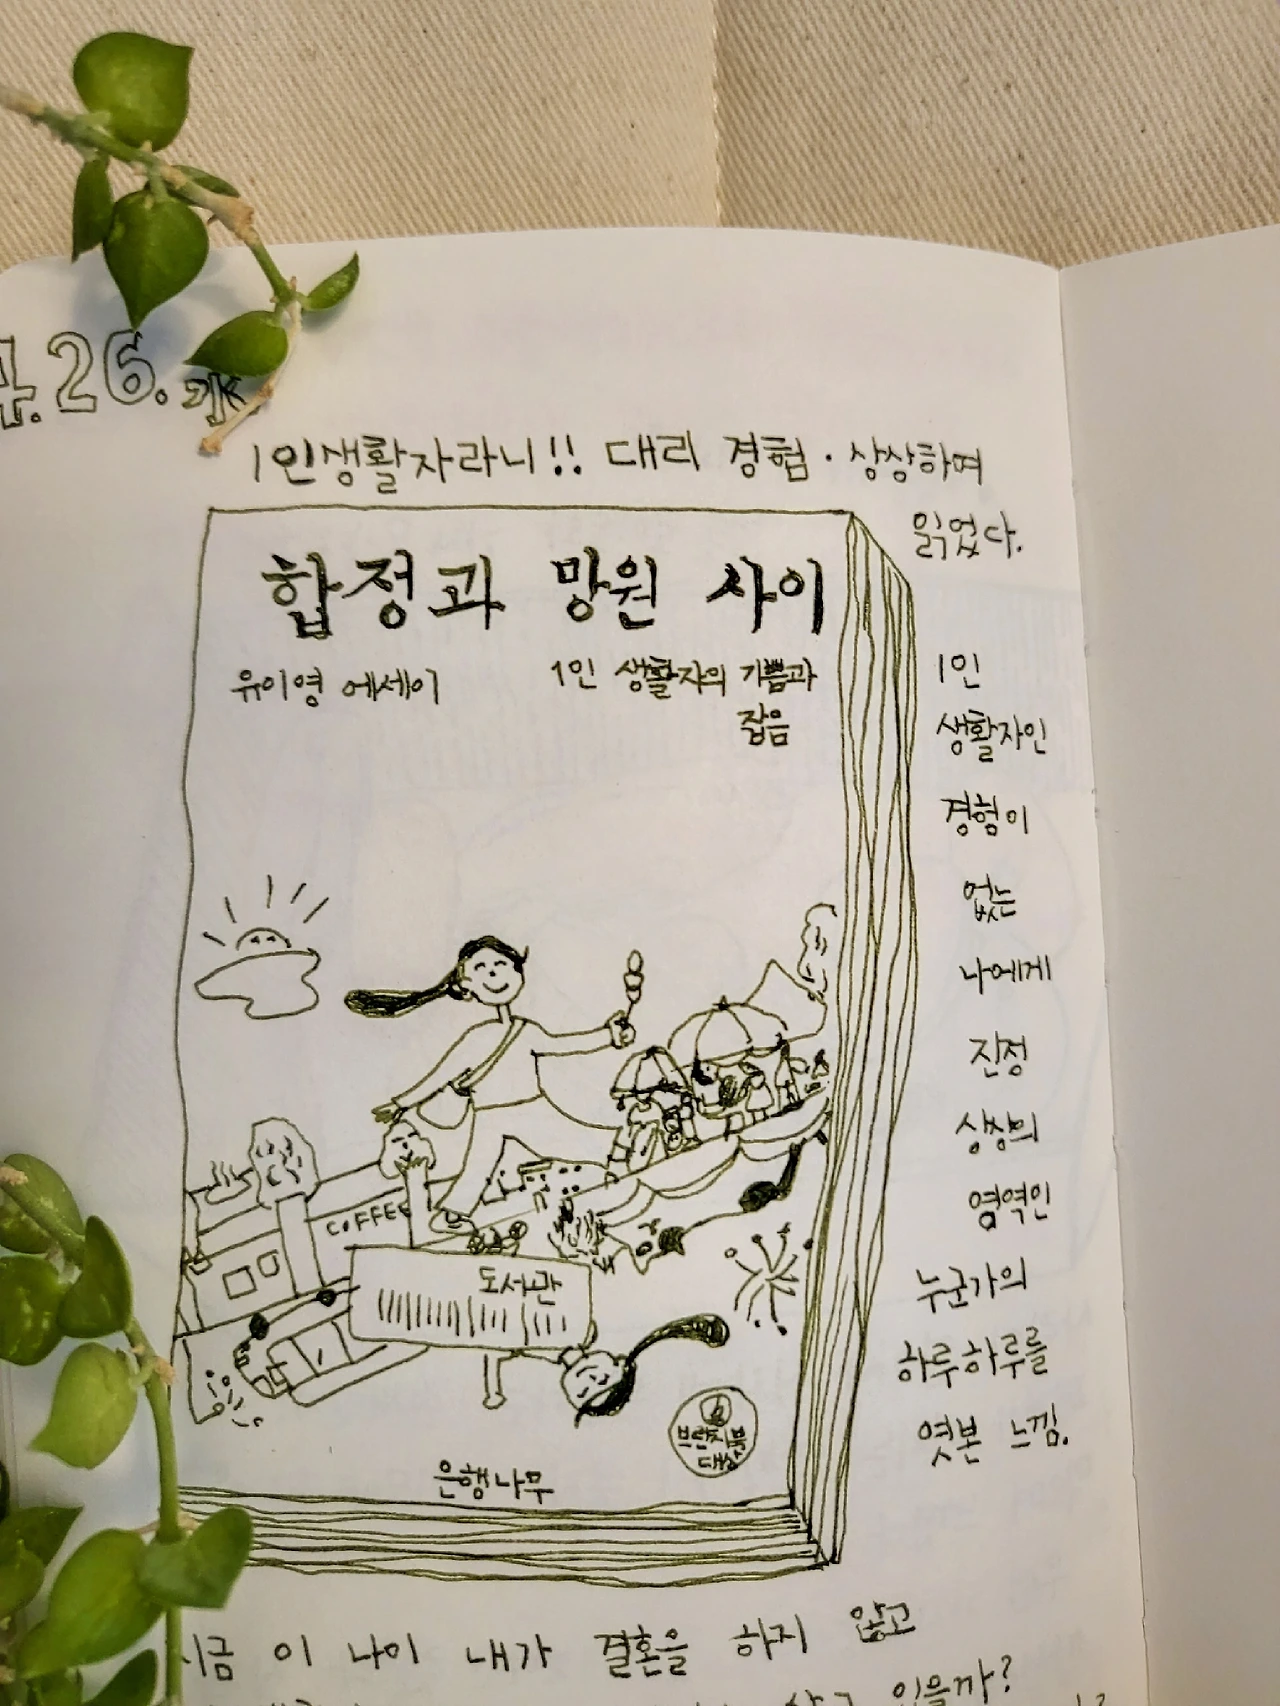 4.26. 水
1인생활자라니!! 대리 경험·상상하며
읽었다.
합정과 망원 사이
유이영 에세이
1인 생활자의 기쁨과
잡음
1인
생활자인
경험이
없는
나에게
진정
상상의
영역인
누군가의
하루하루를
엿본 느낌.
COFFEE
도서관
브런치북
대상
은행나무
지금 이 나이 내가 결혼을 하지 않고
있을까?